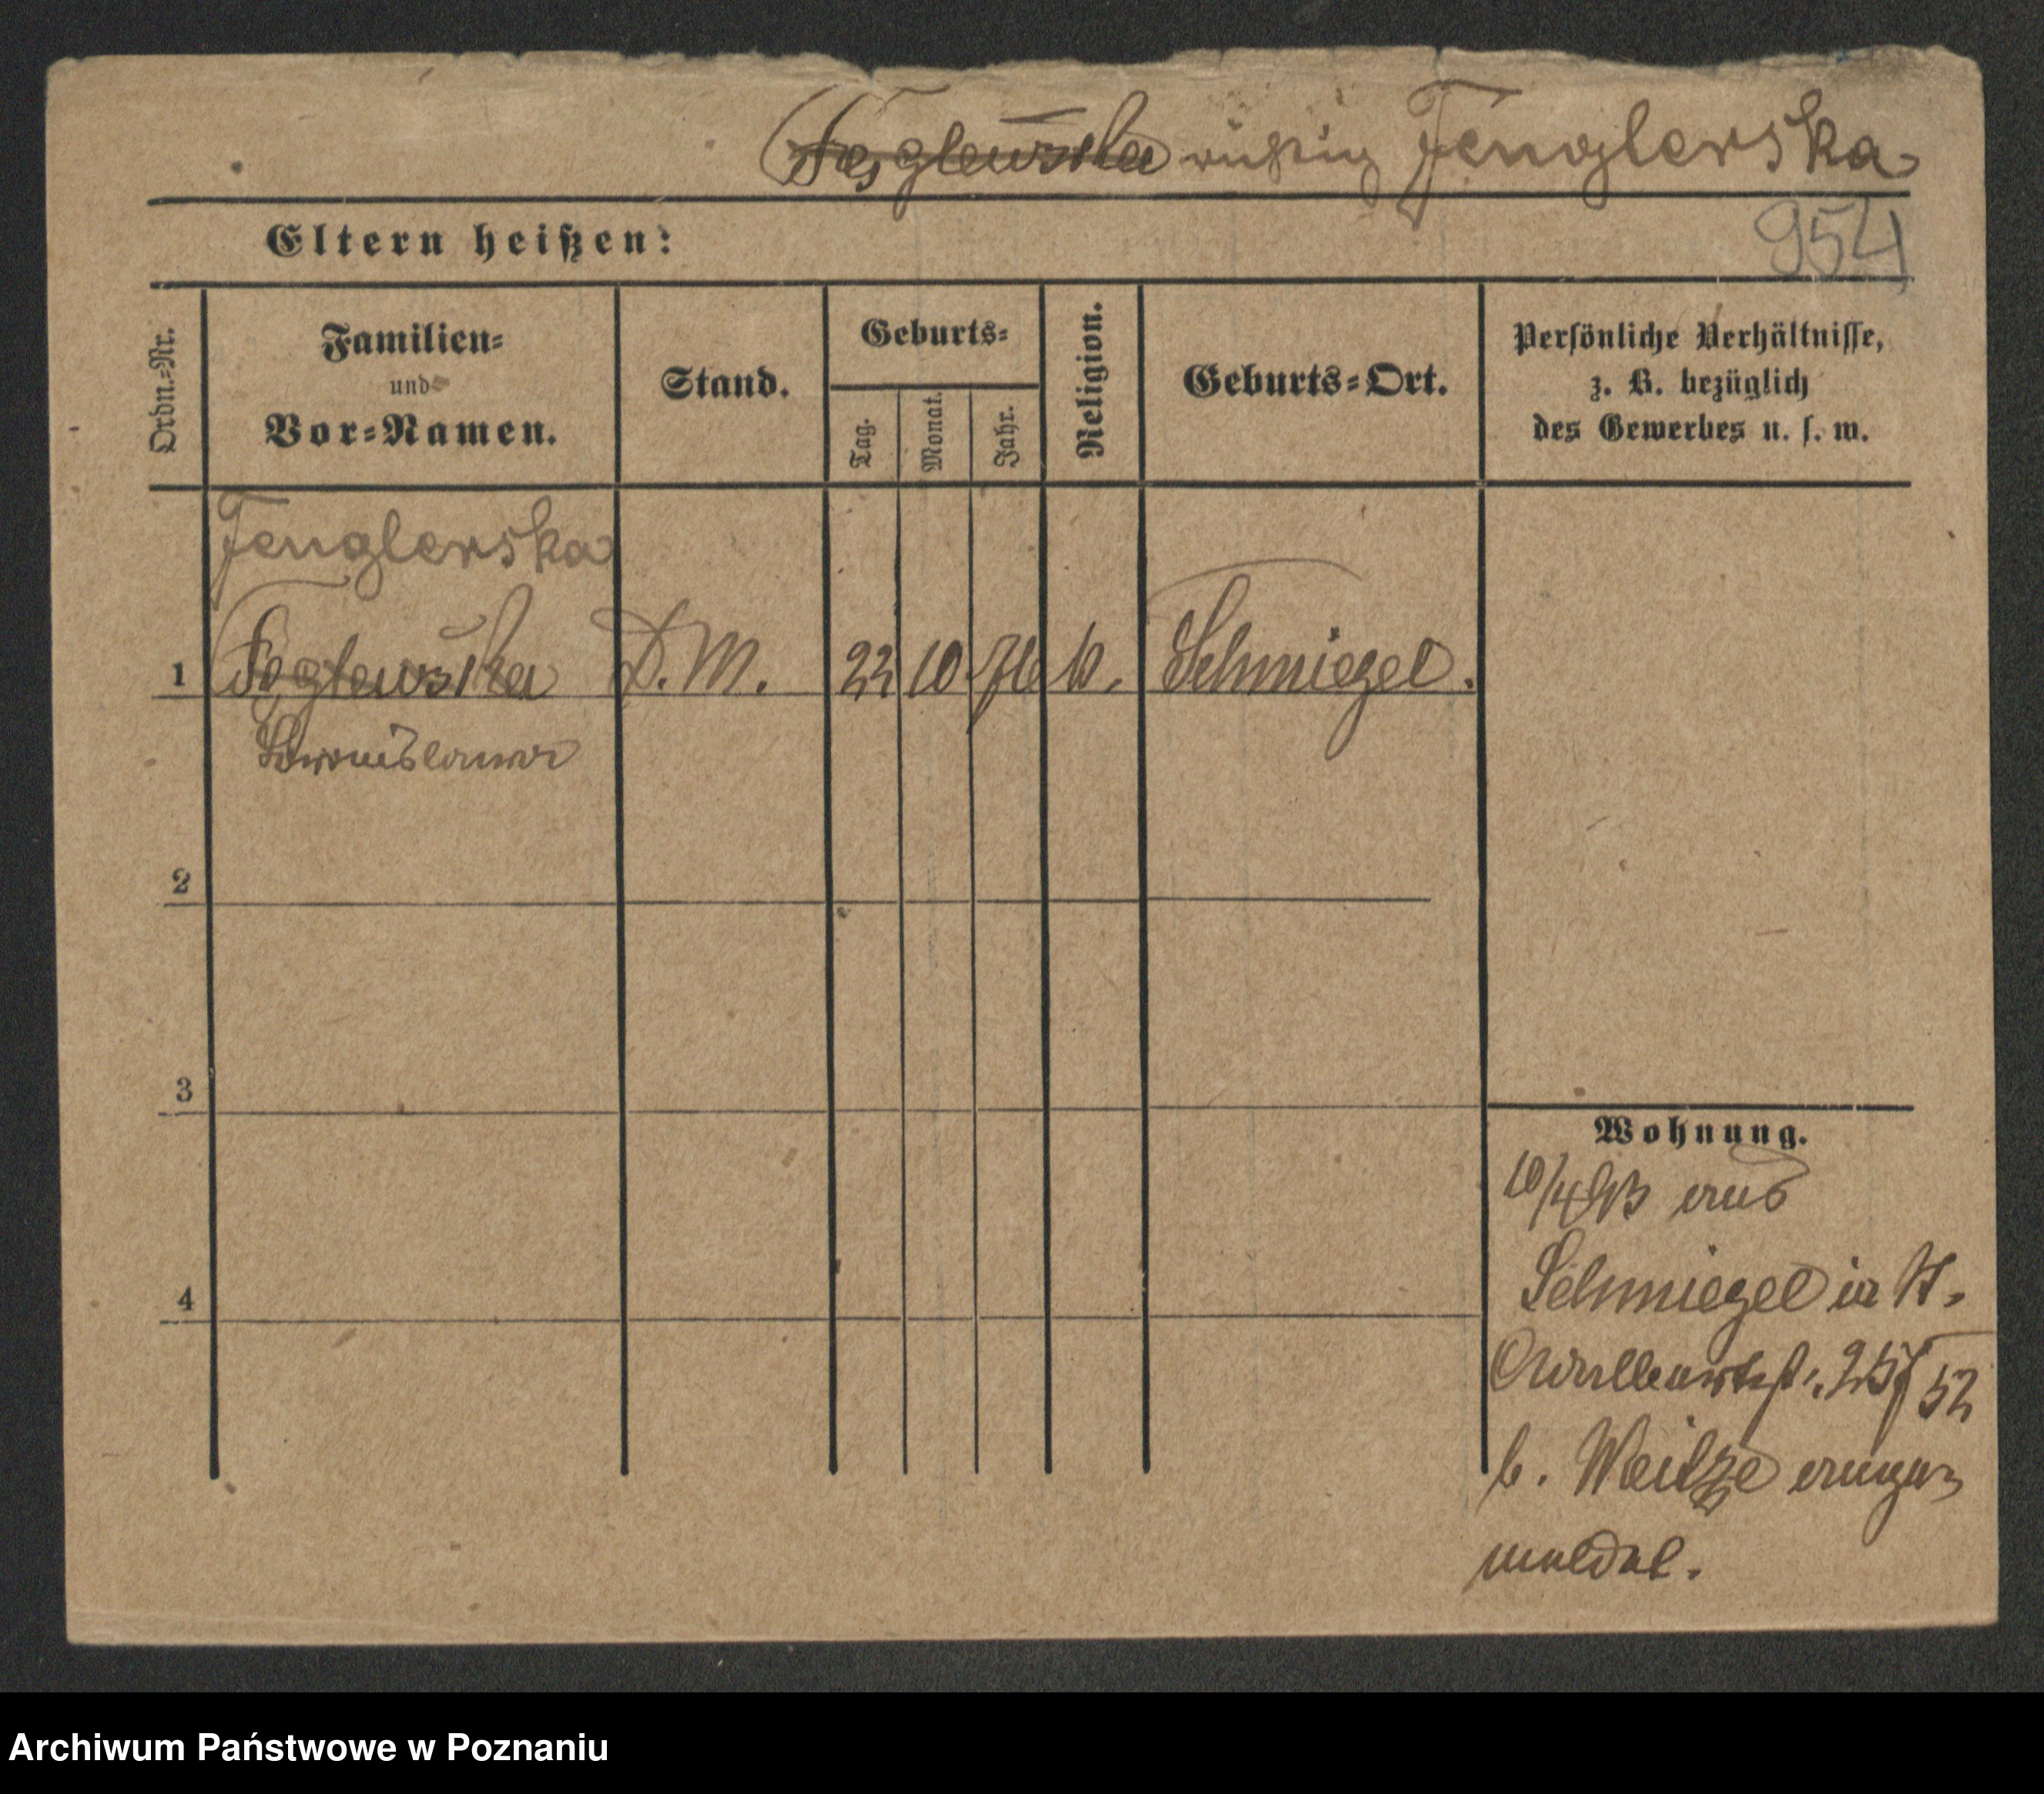 Feglewska richtig Fenglerska
954
Eltern heißen:
Ordn.-Nr.
Familien-
und
Vor-Namen.
Stand.
Geburts-
Tag.
Monat.
Jahr.
Religion.
Geburts-Ort.
Persönliche Verhältnisse,
z. B. bezüglich
des Gewerbes u. s. w.
Fenglerska
1 Feglewska D. M. 22 10 76 k. Schmiegel.
Bronislawa
2
3
4
Wohnung.
10/4 93 aus
Schmiegel in
52
b. Weitze ange-
meldet.
Archiwum Państwowe w Poznaniu